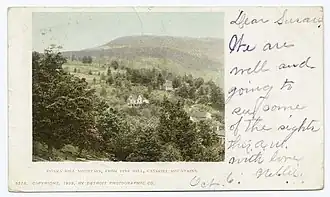 Dear Susan,
We are
well and
going to
see some
of the sights
with love
Oct. 6. Nellie.
MOUNTAIN, FROM PINE HILL, CATSKILL MOUNTAINS
COPYRIGHT, 1902, BY DETROIT PHOTOGRAPHIC CO.